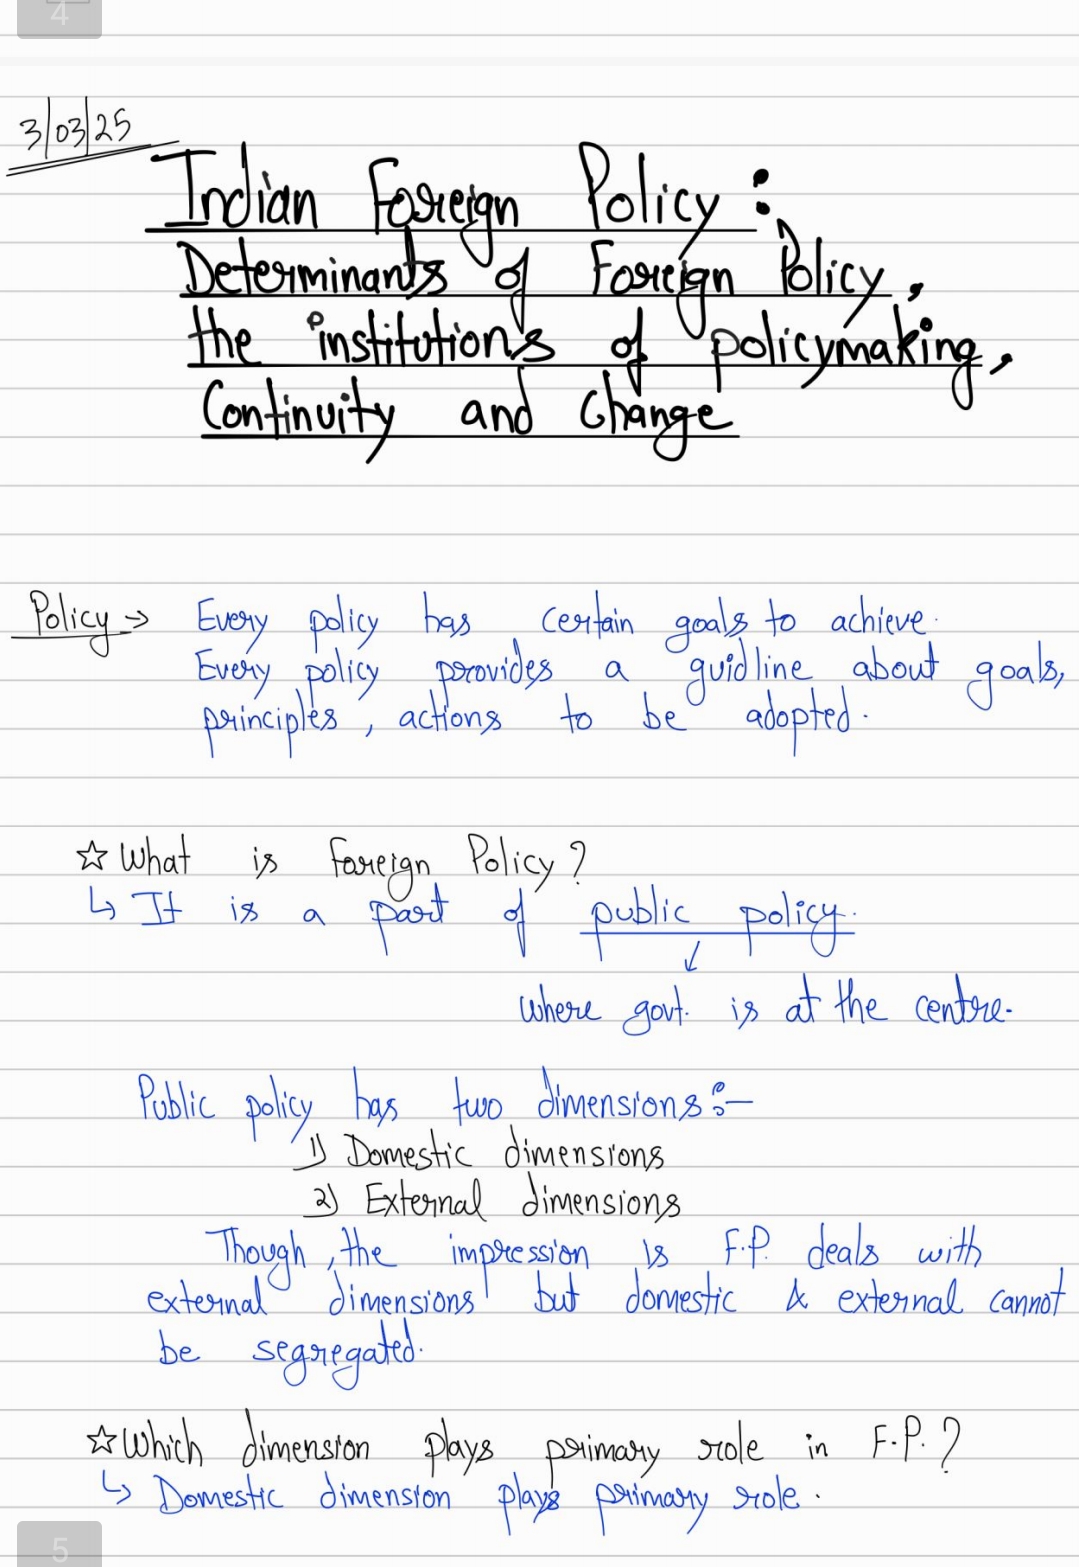 4
3/03/25
Indian Foreign Policy :
Determinants of Foreign Policy,
the institutions of policymaking,
Continuity and Change
Policy → Every policy has certain goals to achieve.
Every policy provides a guidline about goals,
principles, actions to be adopted.
☆ What is Foreign Policy?
↳ It is a part of public policy.
↓
where govt. is at the centre.
Public policy has two dimensions:-
1) Domestic dimensions
2) External dimensions
Though, the impression is F.P. deals with
external dimensions but domestic & external cannot
be segregated.
☆ Which dimension plays primary role in F.P.?
↳ Domestic dimension plays primary role.
5